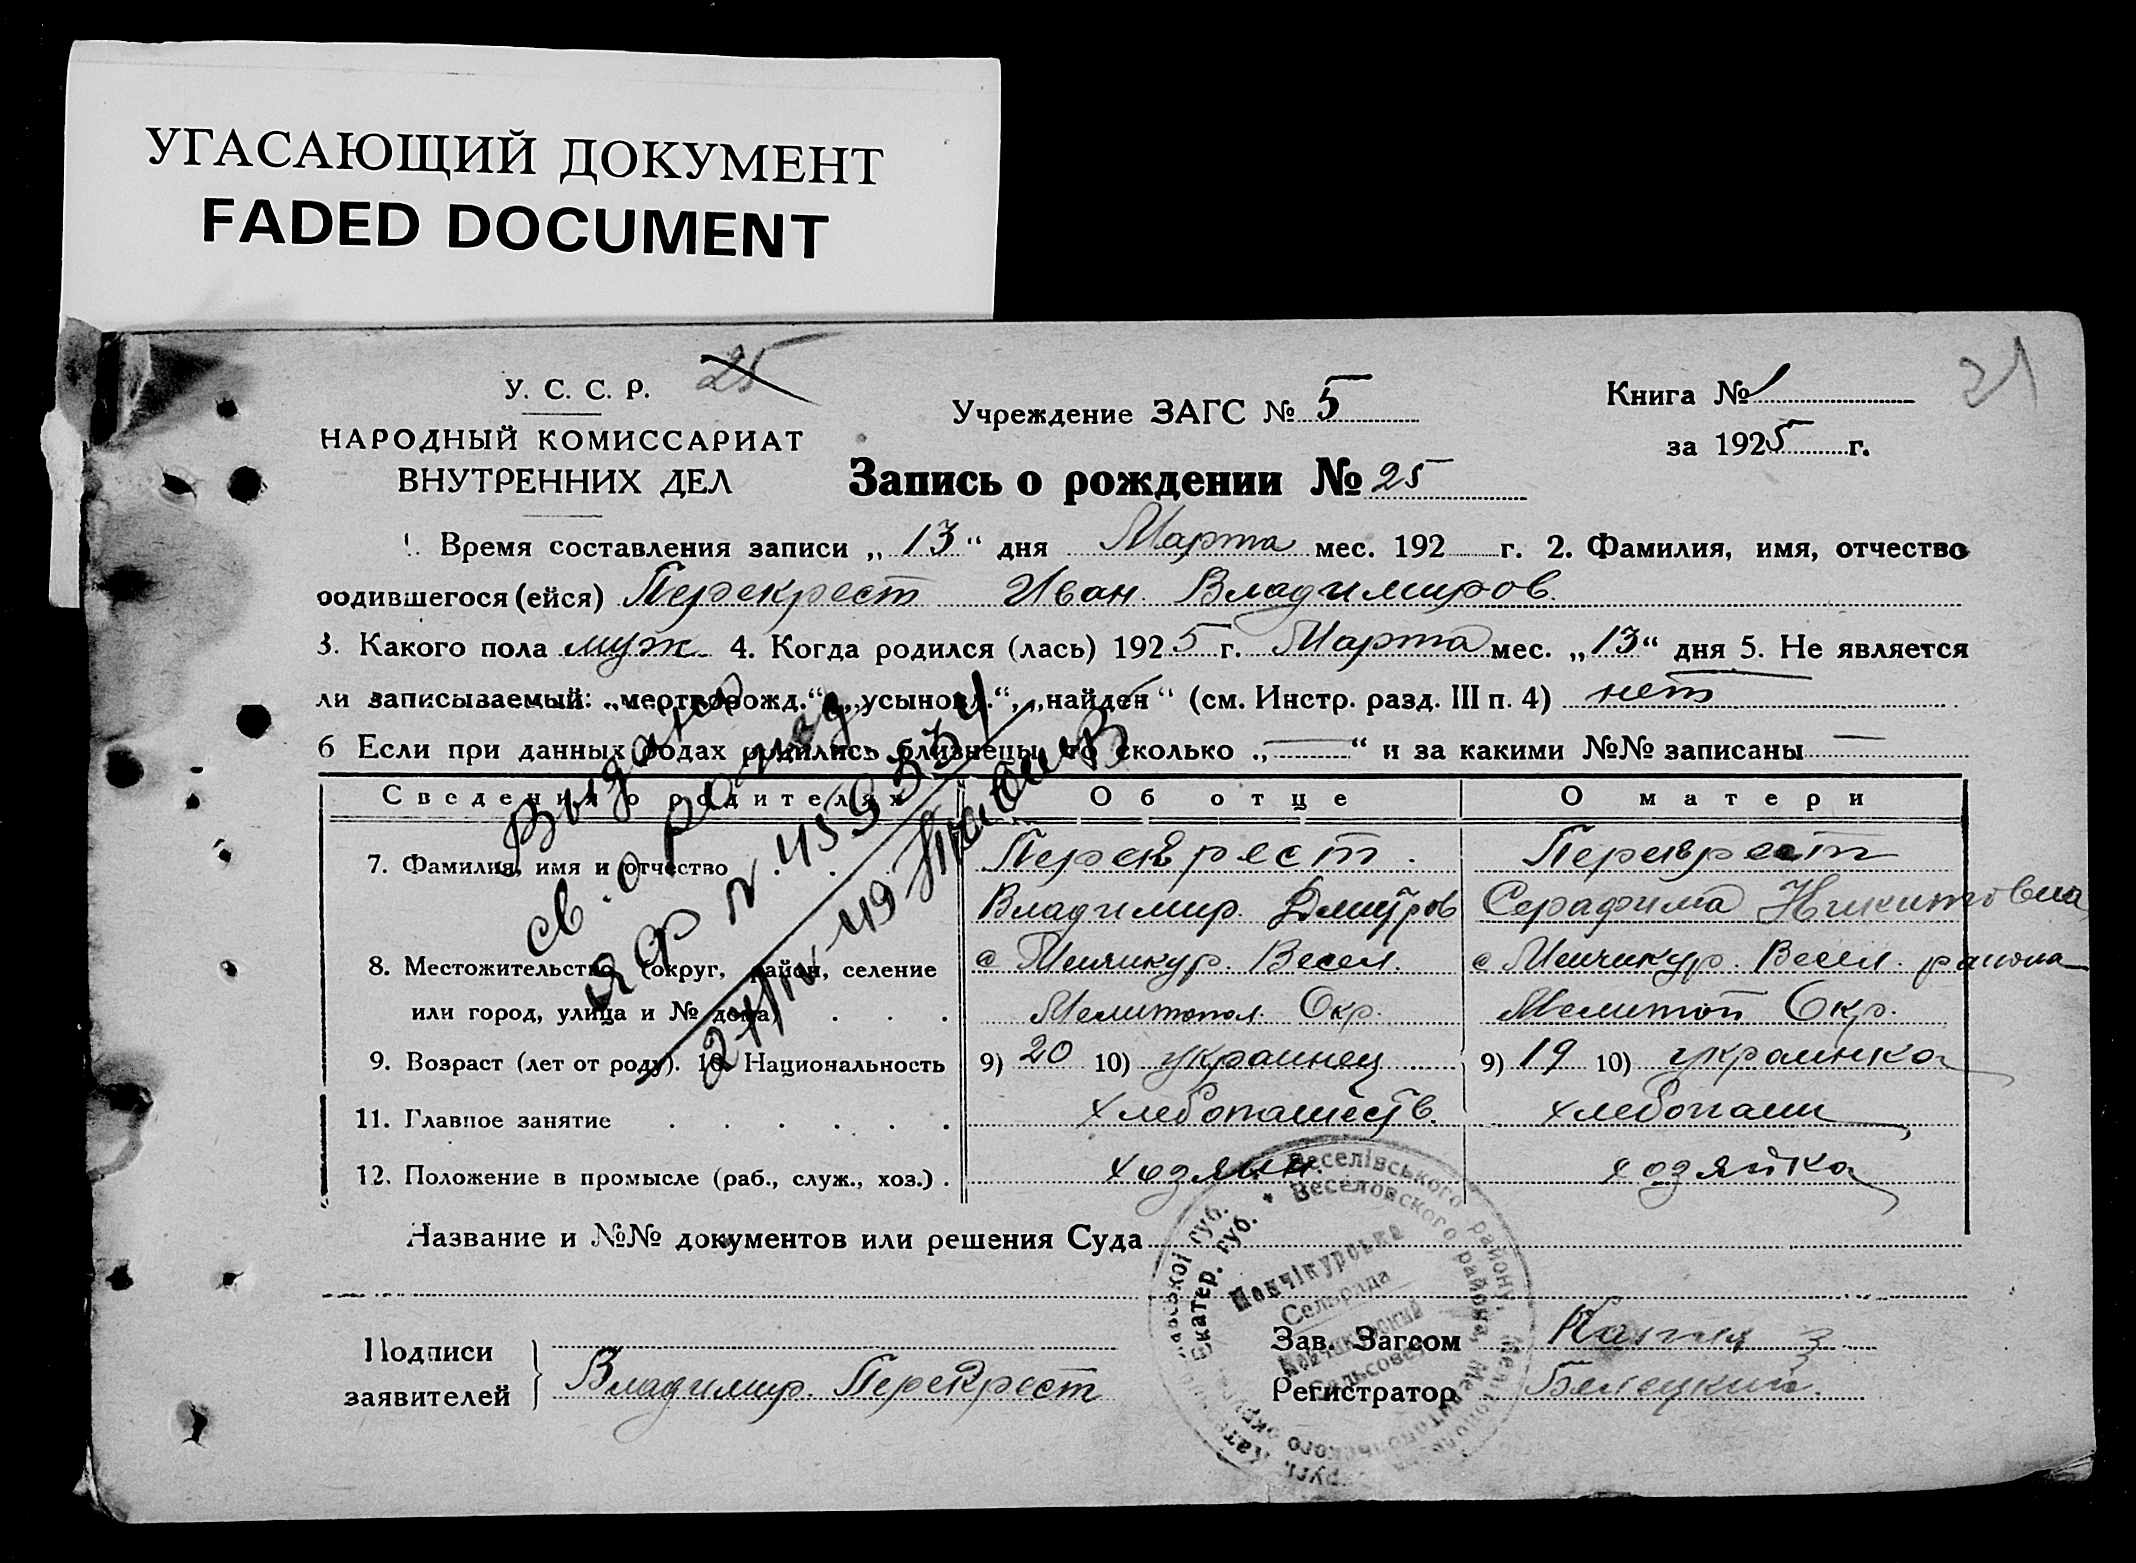 УГАСАЮЩИЙ ДОКУМЕНТ
FADED DOCUMENT
У. С. С. Р. 25
НАРОДНЫЙ КОМИССАРИАТ
ВНУТРЕННИХ ДЕЛ
Учреждение ЗАГС № 5
Запись о рождении № 25
Книга № 1
за 1925 г.
1. Время составления записи „13“ дня Марта мес. 192 г. 2. Фамилия, имя, отчество
родившегося (ейся) Перекрест Иван Владимиров.
3. Какого пола муж 4. Когда родился (лась) 1925 г. Марта мес. „13“ дня 5. Не является
ли записываемый: „мертворожд.“, „усыновл.“, „найден“ (см. Инстр. разд. III п. 4) нет
6 Если при данных родах родились близнецы, то сколько „—“ и за какими №№ записаны —
Сведения о родителях Об отце О матери
7. Фамилия, имя и отчество Перекрест Перекрест
Владимир Дмитров Серафима Никитовна
8. Местожительство (округ, район, селение с Менчикур. Весел. с Менчикур. Весел. района
или город, улица и № дома) Мелитопол. Окр. Мелитоп Окр.
9. Возраст (лет от роду). 10. Национальность 9) 20 10) украинец 9) 19 10) украинка
11. Главное занятие хлебопашеств. хлебопаш
12. Положение в промысле (раб., служ., хоз.) хозяин. хозяйка
Название и №№ документов или решения Суда
Подписи
заявителей
Владимир Перекрест
Зав. Загсом
Регистратор Белецкий
Выдано
св. о рожд
Веселівського району
Веселовского района
Екатер. губ.
Менчікурська
Сельрада